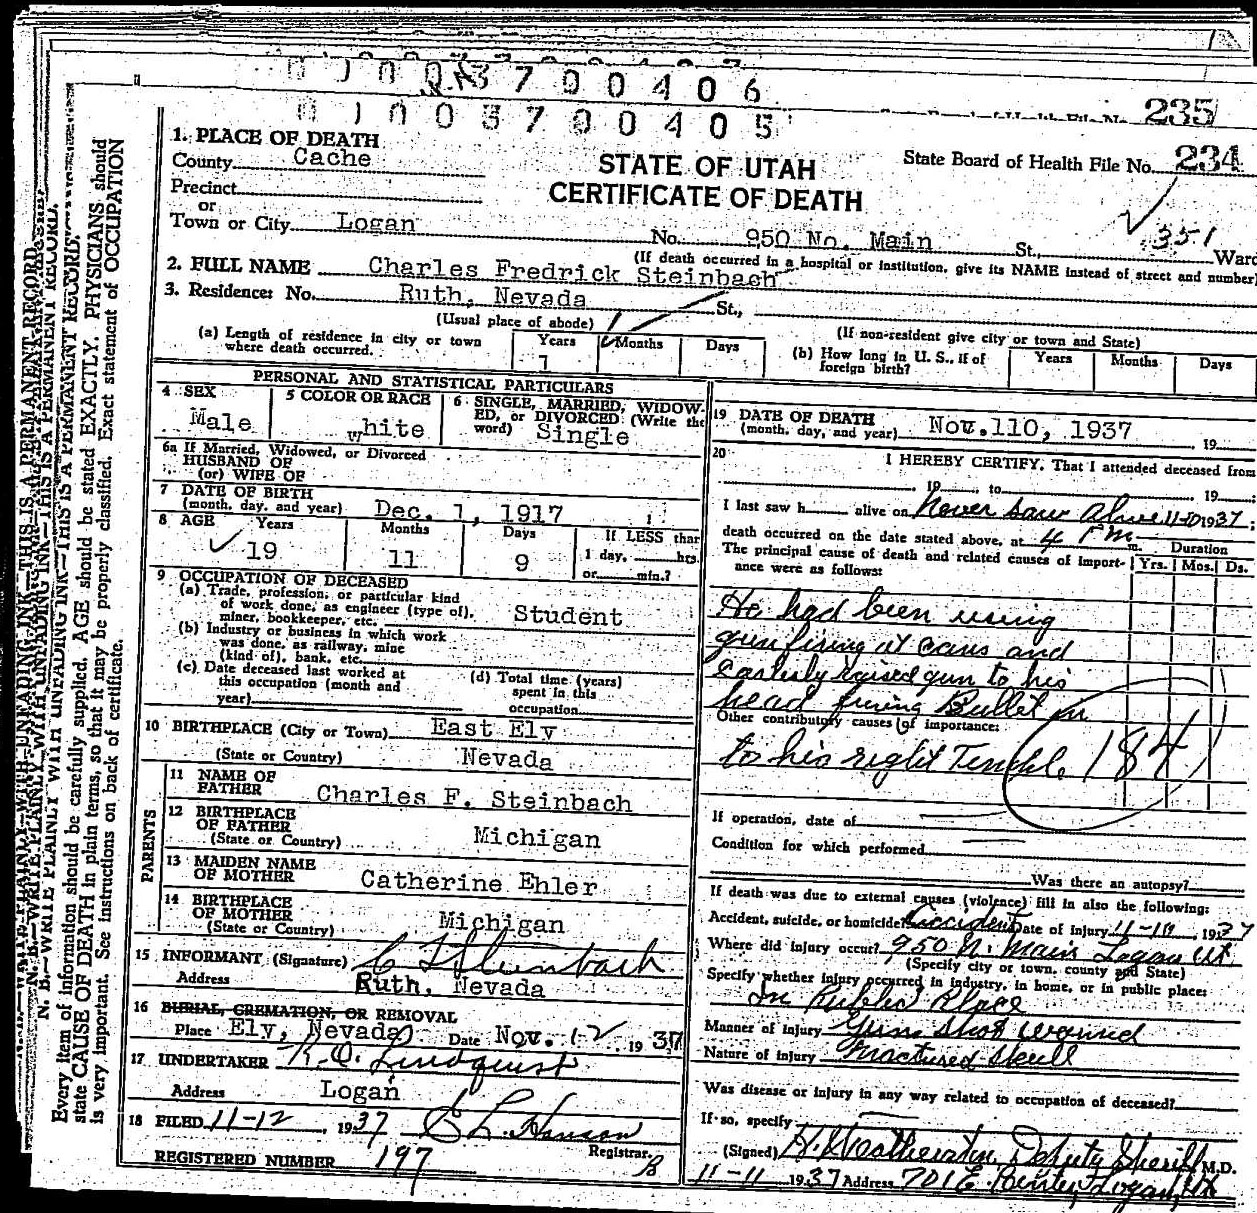 3700406
00003700405
235
1. PLACE OF DEATH
County Cache
STATE OF UTAH
CERTIFICATE OF DEATH
State Board of Health File No. 234
Precinct
or
Town or City Logan No. 950 No. Main St., 351 Ward
(If death occurred in a hospital or institution, give its NAME instead of street and number)
2. FULL NAME Charles Fredrick Steinbach
3. Residence: No. Ruth, Nevada St.,
(Usual place of abode) (If non-resident give city or town and State)
(a) Length of residence in city or town where death occurred. Years 1 Months Days
(b) How long in U. S., if of foreign birth? Years Months Days
PERSONAL AND STATISTICAL PARTICULARS
4 SEX Male
5 COLOR OR RACE white
6 SINGLE, MARRIED, WIDOWED, or DIVORCED (Write the word) Single
6a If Married, Widowed, or Divorced
HUSBAND OF
(or) WIFE OF
7 DATE OF BIRTH
(month, day, and year) Dec. 1, 1917
8 AGE Years 19 Months 11 Days 9 If LESS than 1 day, hrs. or min.?
9 OCCUPATION OF DECEASED
(a) Trade, profession, or particular kind of work done, as engineer (type of), miner, bookkeeper, etc. Student
(b) Industry or business in which work was done, as railway, mine (kind of), bank, etc.
(c) Date deceased last worked at this occupation (month and year)
(d) Total time (years) spent in this occupation
10 BIRTHPLACE (City or Town) East Ely
(State or Country) Nevada
PARENTS
11 NAME OF FATHER Charles F. Steinbach
12 BIRTHPLACE OF FATHER
(State or Country) Michigan
13 MAIDEN NAME OF MOTHER Catherine Ehler
14 BIRTHPLACE OF MOTHER
(State or Country) Michigan
15 INFORMANT (Signature) C F Steinbach
Address Ruth, Nevada
16 BURIAL, CREMATION, OR REMOVAL
Place Ely, Nevada Date Nov. 12 1937
17 UNDERTAKER Lindquist
Address Logan
18 FILED 11-12, 1937 E L. Hanson
Registrar.
REGISTERED NUMBER 197
19 DATE OF DEATH
(month, day, and year) Nov. 110, 1937 19
20 I HEREBY CERTIFY, That I attended deceased from
19 to 19
I last saw h alive on Never Saw Alive 11-10 1937;
death occurred on the date stated above, at 4 P m.
The principal cause of death and related causes of importance were as follows: Duration Yrs. Mos. Ds.
He had been using
gun firing at cans and
raised gun to his
head firing Bullet in
Other contributory causes of importance:
to his right Temple 184
If operation, date of
Condition for which performed
Was there an autopsy?
If death was due to external causes (violence) fill in also the following:
Accident, suicide, or homicide? Accident Date of injury 11-10 1937
Where did injury occur? 950 N. Main Logan Ut.
(Specify city or town, county and State)
Specify whether injury occurred in industry, in home, or in public place:
In Public Place
Manner of injury Gun Shot wound
Nature of injury Fractured Skull
Was disease or injury in any way related to occupation of deceased?
If so, specify
(Signed) Deputy Sheriff M.D.
11-11 1937 Address 701 E. Center, Logan, Ut
N. B.—WRITE PLAINLY WITH UNFADING INK—THIS IS A PERMANENT RECORD.
Every item of information should be carefully supplied. AGE should be stated EXACTLY. PHYSICIANS should
state CAUSE OF DEATH in plain terms, so that it may be properly classified. Exact statement of OCCUPATION
is very important. See instructions on back of certificate.